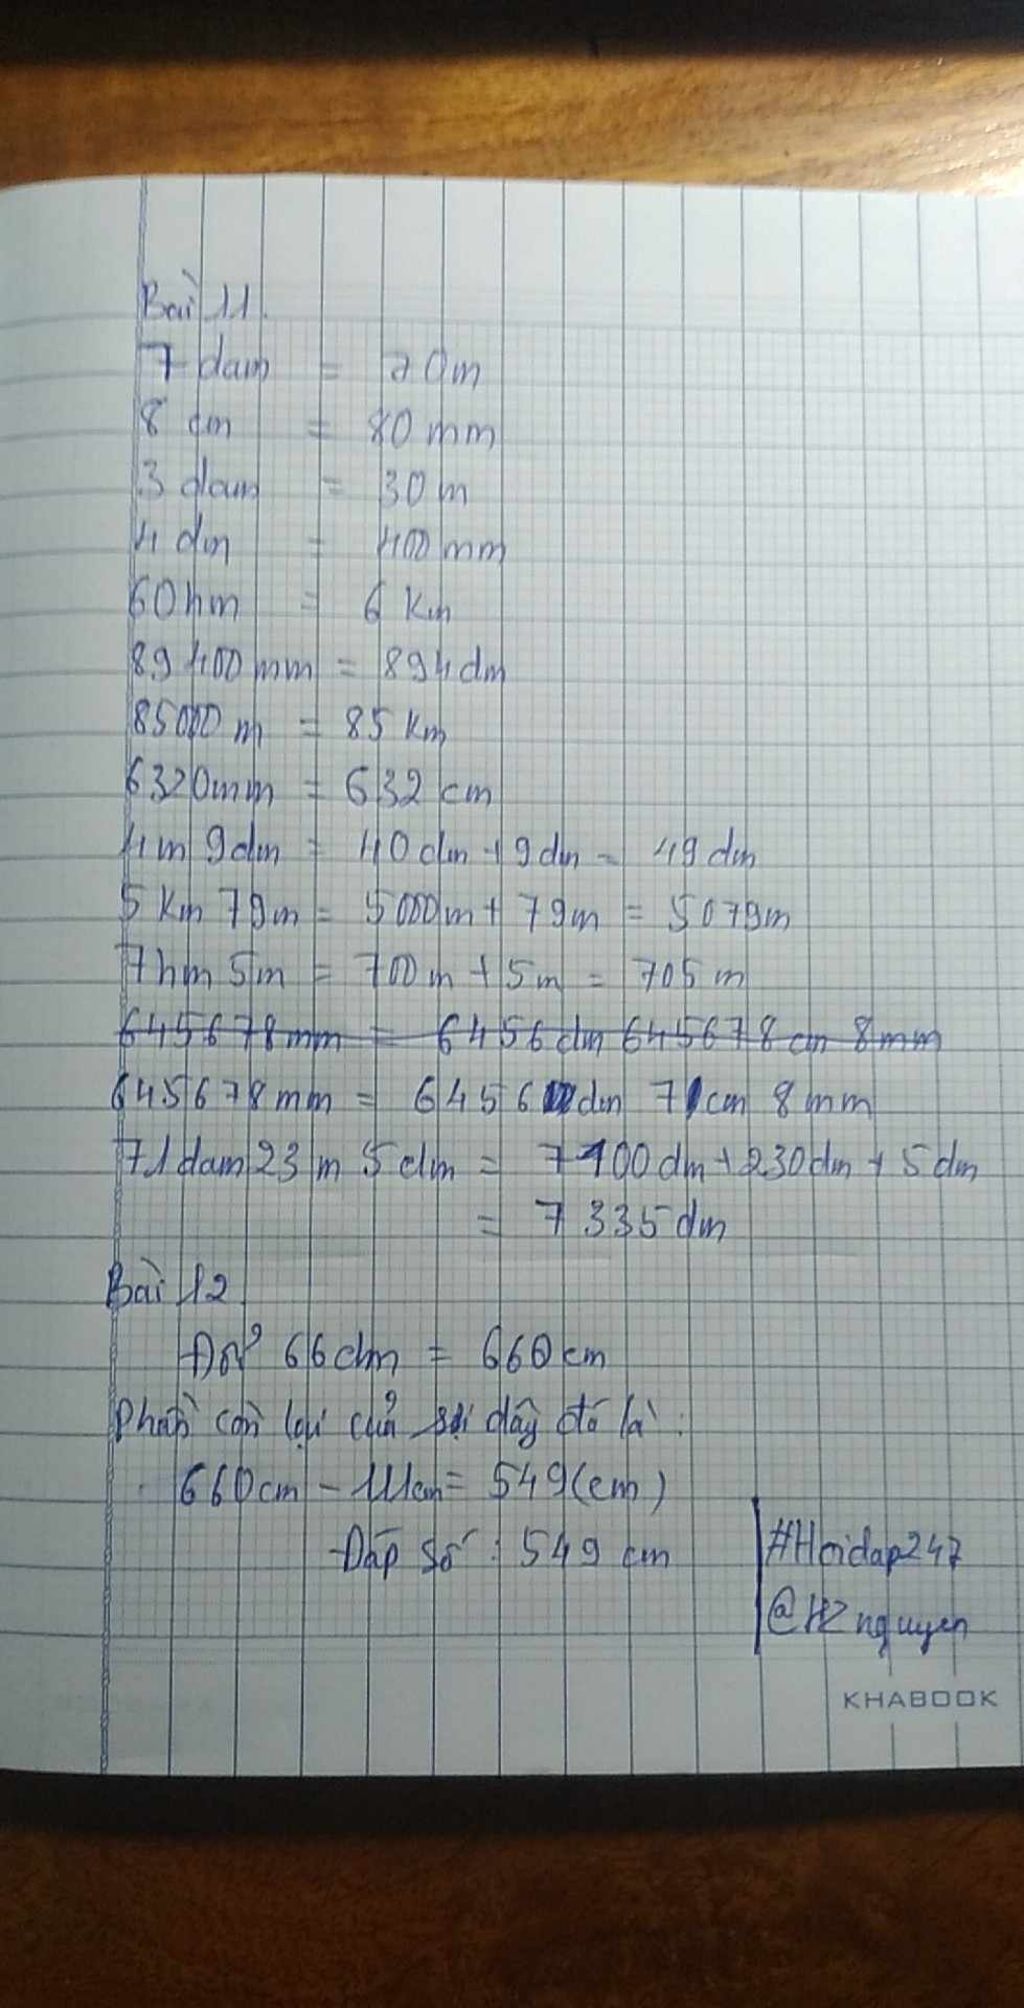 Bài 11.
7 dam = 70m
8 cm = 80 mm
3 dam = 30 m
4 dm = 400 mm
60hm = 6 Km
89400 mm = 894 dm
85000 m = 85 Km
6320mm = 632 cm
4m 9dm = 40 dm + 9 dm = 49 dm
5 Km 79m = 5000m + 79m = 5079m
7hm 5m = 700 m + 5m = 705 m
645678mm = 6456 dm 645678 cm 8mm
645678mm = 6456 dm 7 cm 8 mm
71 dam 23 m 5 dm = 7100 dm + 230 dm + 5 dm
= 7335 dm
Bài 12
Đổi 66 dm = 660 cm
Phần còn lại của sợi dây đó là:
660cm - 111cm = 549(cm)
Đáp số: 549 cm
#Hoidap247
@HZnguyen
KHABOOK